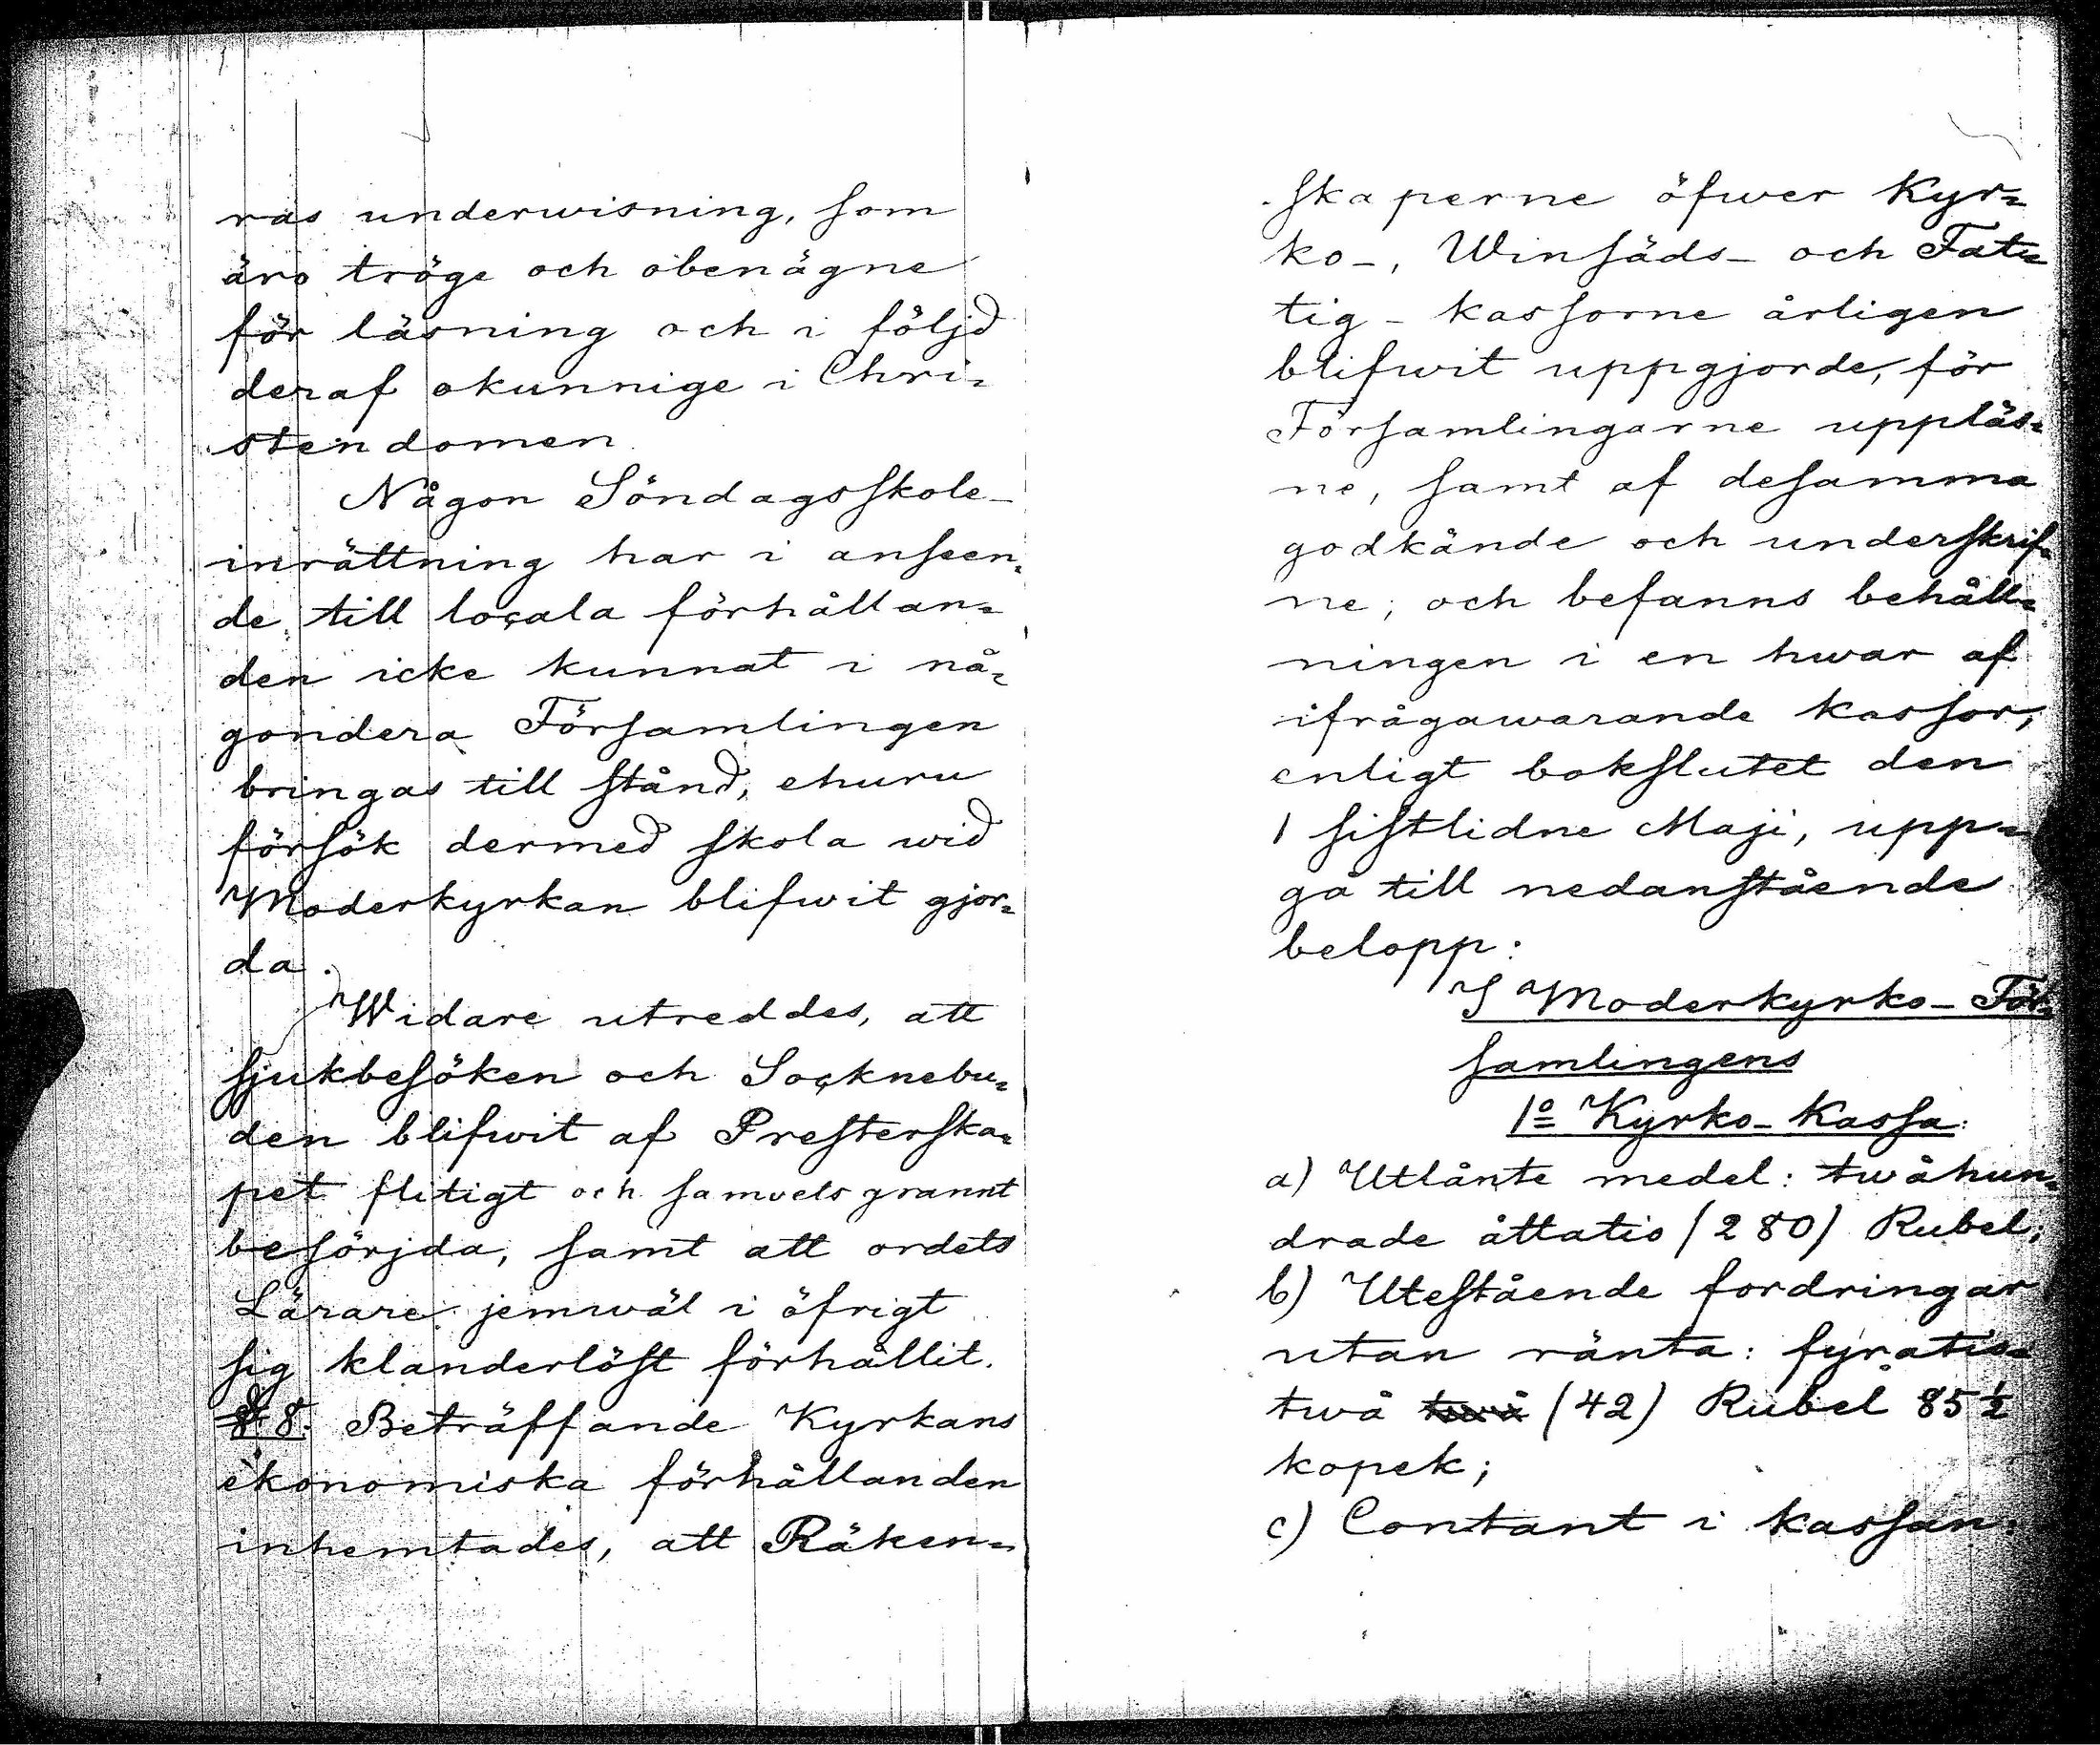 ras underwisning, som
äro tröge och obenägne
för läsning och i följd
deraf okunnige i Chri-
stendomen
Någon Söndagsskole-
inrättning har i anseen-
de till locala förhållan-
den icke kunnat i nå-
gondera Församlingen
bringas till stånd, ehuru
försök dermed skola wid
Moderkyrkan blifwit gjor-
da.
Widare utreddes, att
sjukbesöken och Socknebu-
den blifwit af Presterska-
pet flitigt och samvetsgrannt
besörjda, samt att ordets
Lärare jemwäl i öfrigt
sig klanderlöst förhållit.
§ 8. Beträffande Kyrkans
ekonomiska förhållanden
inhemtades, att Räken-
skaperne öfwer Kyr-
ko-, Winsäds- och Fat-
tig-kassorne årligen
blifwit uppgjorde, för
Församlingarne uppläs-
ne, samt af desamma
godkände och underskrif-
ne; och befanns behåll-
ningen i en hwar af
ifrågawarande kassor,
enligt bokslutet den
1 sistlidne Maji, upp-
gå till nedanstående
belopp:
I Moderkyrko-För-
samlingens
1º Kyrko-Kassa:
a) Utlånte medel: twåhun-
drade åttatio (280) Rubel;
b) Utestående fordringar
utan ränta: fyratio-
twå twå (42) Rubel 85 ½
kopek;
c) Contant i kassan: